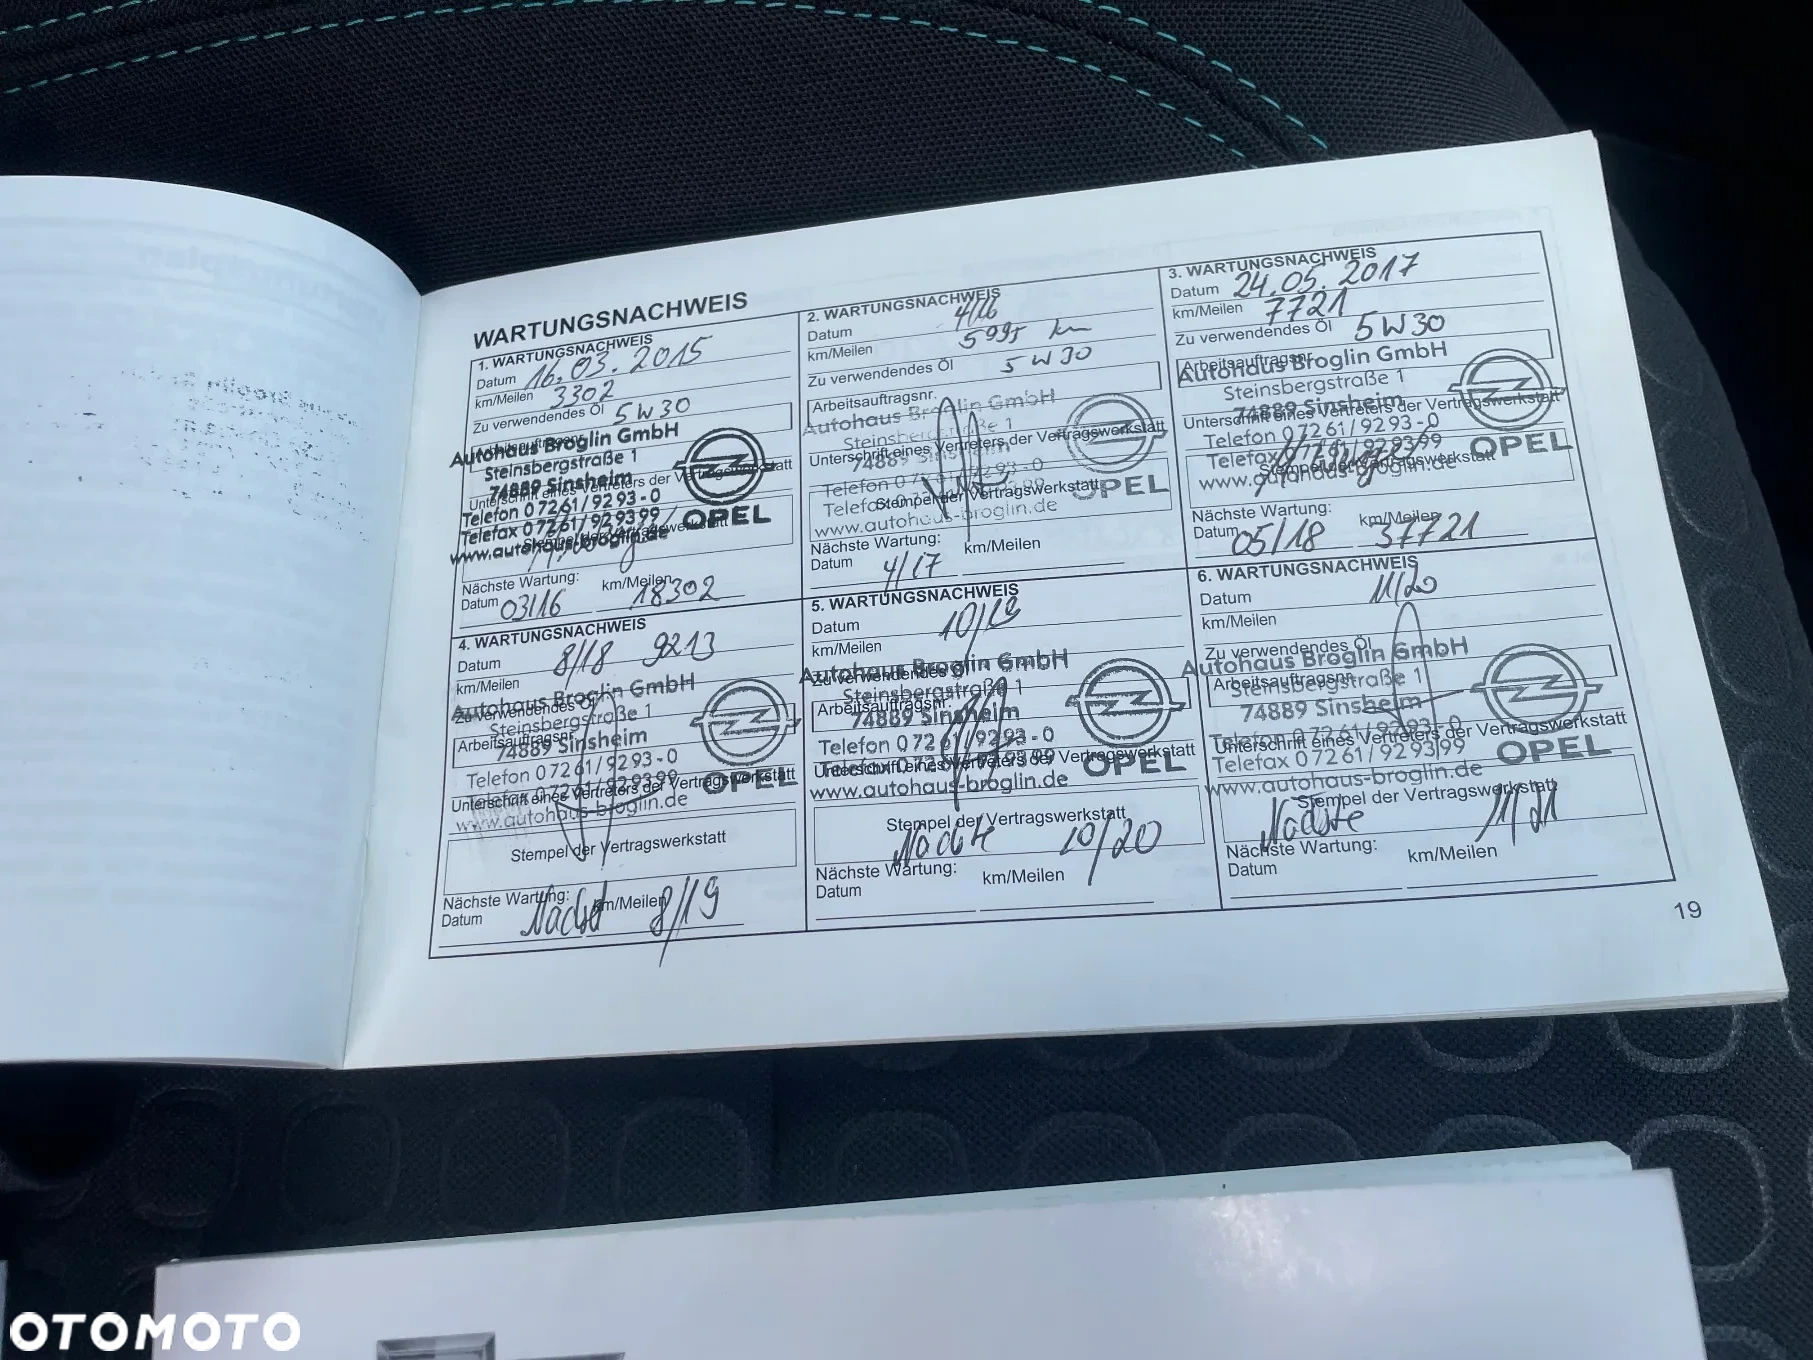 WARTUNGSNACHWEIS
1. WARTUNGSNACHWEIS
Datum 16.03.2015
km/Meilen 3302
Zu verwendendes Öl 5W30
Autohaus Broglin GmbH
Steinsbergstraße 1
74889 Sinsheim
Unterschrift eines Vertreters der Vertragswerkstatt
Telefon 0 72 61 / 92 93 - 0
Telefax 0 72 61 / 92 93 99
OPEL
Stempel der Vertragswerkstatt
www.autohaus-broglin.de
Nächste Wartung: km/Meilen
Datum 03/16 18302
2. WARTUNGSNACHWEIS
Datum 4/16
km/Meilen 5995 km
Zu verwendendes Öl 5W30
Arbeitsauftragsnr.
Autohaus Broglin GmbH
Steinsbergstraße 1
Unterschrift eines Vertreters der Vertragswerkstatt
74889 Sinsheim
Telefon 0 72 61 / 92 93 - 0
Stempel der Vertragswerkstatt
OPEL
www.autohaus-broglin.de
Nächste Wartung: km/Meilen
Datum 4/17
3. WARTUNGSNACHWEIS
Datum 24.05.2017
km/Meilen 7721
Zu verwendendes Öl 5W30
Arbeitsauftragsnr.
Autohaus Broglin GmbH
Steinsbergstraße 1
74889 Sinsheim
Unterschrift eines Vertreters der Vertragswerkstatt
Telefon 0 72 61 / 92 93 - 0
Telefax 0 72 61 / 92 93 99
OPEL
Stempel der Vertragswerkstatt
www.autohaus-broglin.de
Nächste Wartung: km/Meilen
Datum 05/18 37721
4. WARTUNGSNACHWEIS
Datum 8/18 9213
km/Meilen
Autohaus Broglin GmbH
Zu verwendendes Öl
Steinsbergstraße 1
Arbeitsauftragsnr.
74889 Sinsheim
Telefon 0 72 61 / 92 93 - 0
Telefax 0 72 61 / 92 93 99
OPEL
Unterschrift eines Vertreters der Vertragswerkstatt
www.autohaus-broglin.de
Stempel der Vertragswerkstatt
Nächste Wartung: km/Meilen
Datum Nächst 8/19
5. WARTUNGSNACHWEIS
Datum 10/19
km/Meilen
Autohaus Broglin GmbH
Zu verwendendes Öl
Steinsbergstraße 1
Arbeitsauftragsnr.
74889 Sinsheim
Telefon 0 72 61 / 92 93 - 0
Telefax 0 72 61 / 92 93 99
Unterschrift eines Vertreters der Vertragswerkstatt
OPEL
www.autohaus-broglin.de
Stempel der Vertragswerkstatt
Nächste 10/20
Nächste Wartung: km/Meilen
Datum
6. WARTUNGSNACHWEIS
Datum 11/20
km/Meilen
Zu verwendendes Öl
Autohaus Broglin GmbH
Arbeitsauftragsnr.
Steinsbergstraße 1
74889 Sinsheim
Telefon 0 72 61 / 92 93 - 0
Unterschrift eines Vertreters der Vertragswerkstatt
Telefax 0 72 61 / 92 93 99
OPEL
www.autohaus-broglin.de
Stempel der Vertragswerkstatt
Nächste 11/21
Nächste Wartung: km/Meilen
Datum
19
OTOMOTO